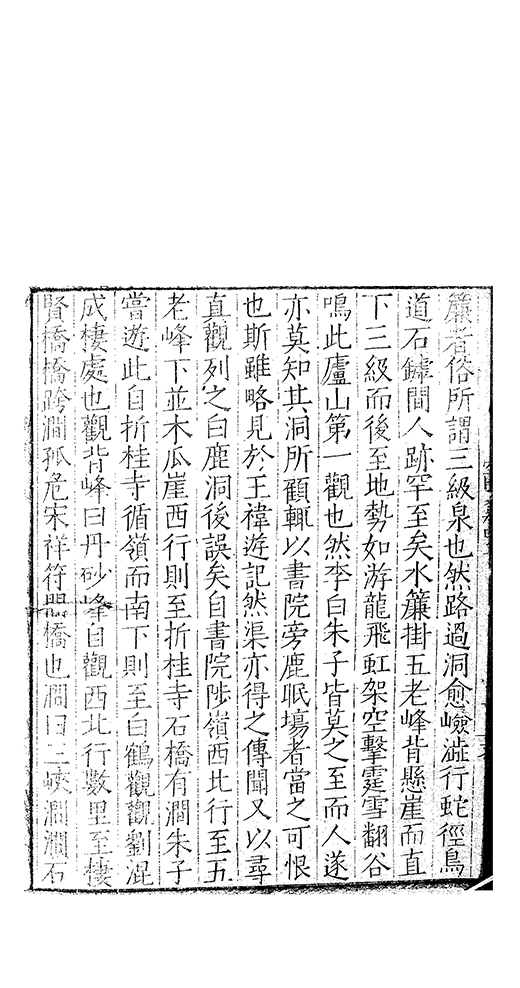 簾者俗所謂三級泉也然路過洞愈嶮澁行蛇徑鳥
道石鏬間人跡罕至矣水簾掛五老峰背懸崖而直
下三級而後至地勢如游龍飛虹架空擊霆雪翻谷
鳴此廬山第一觀也然李白朱子皆莫之至而人遂
亦莫知其洞所顧輒以書院旁鹿眠塲者當之可恨
也斯雖略見於王禕遊記然渠亦得之傳聞又以尋
直觀列之白鹿洞後誤矣自書院陟嶺西北行至五
老峰下並木瓜崖西行則至折桂寺石橋有澗朱子
嘗遊此自折桂寺循嶺而南下則至白鶴觀觀劉混
成棲處也觀背峰曰丹砂峰自觀西北行數里至棲
賢橋橋跨澗孤危宋祥符間橋也澗曰三峽澗澗石